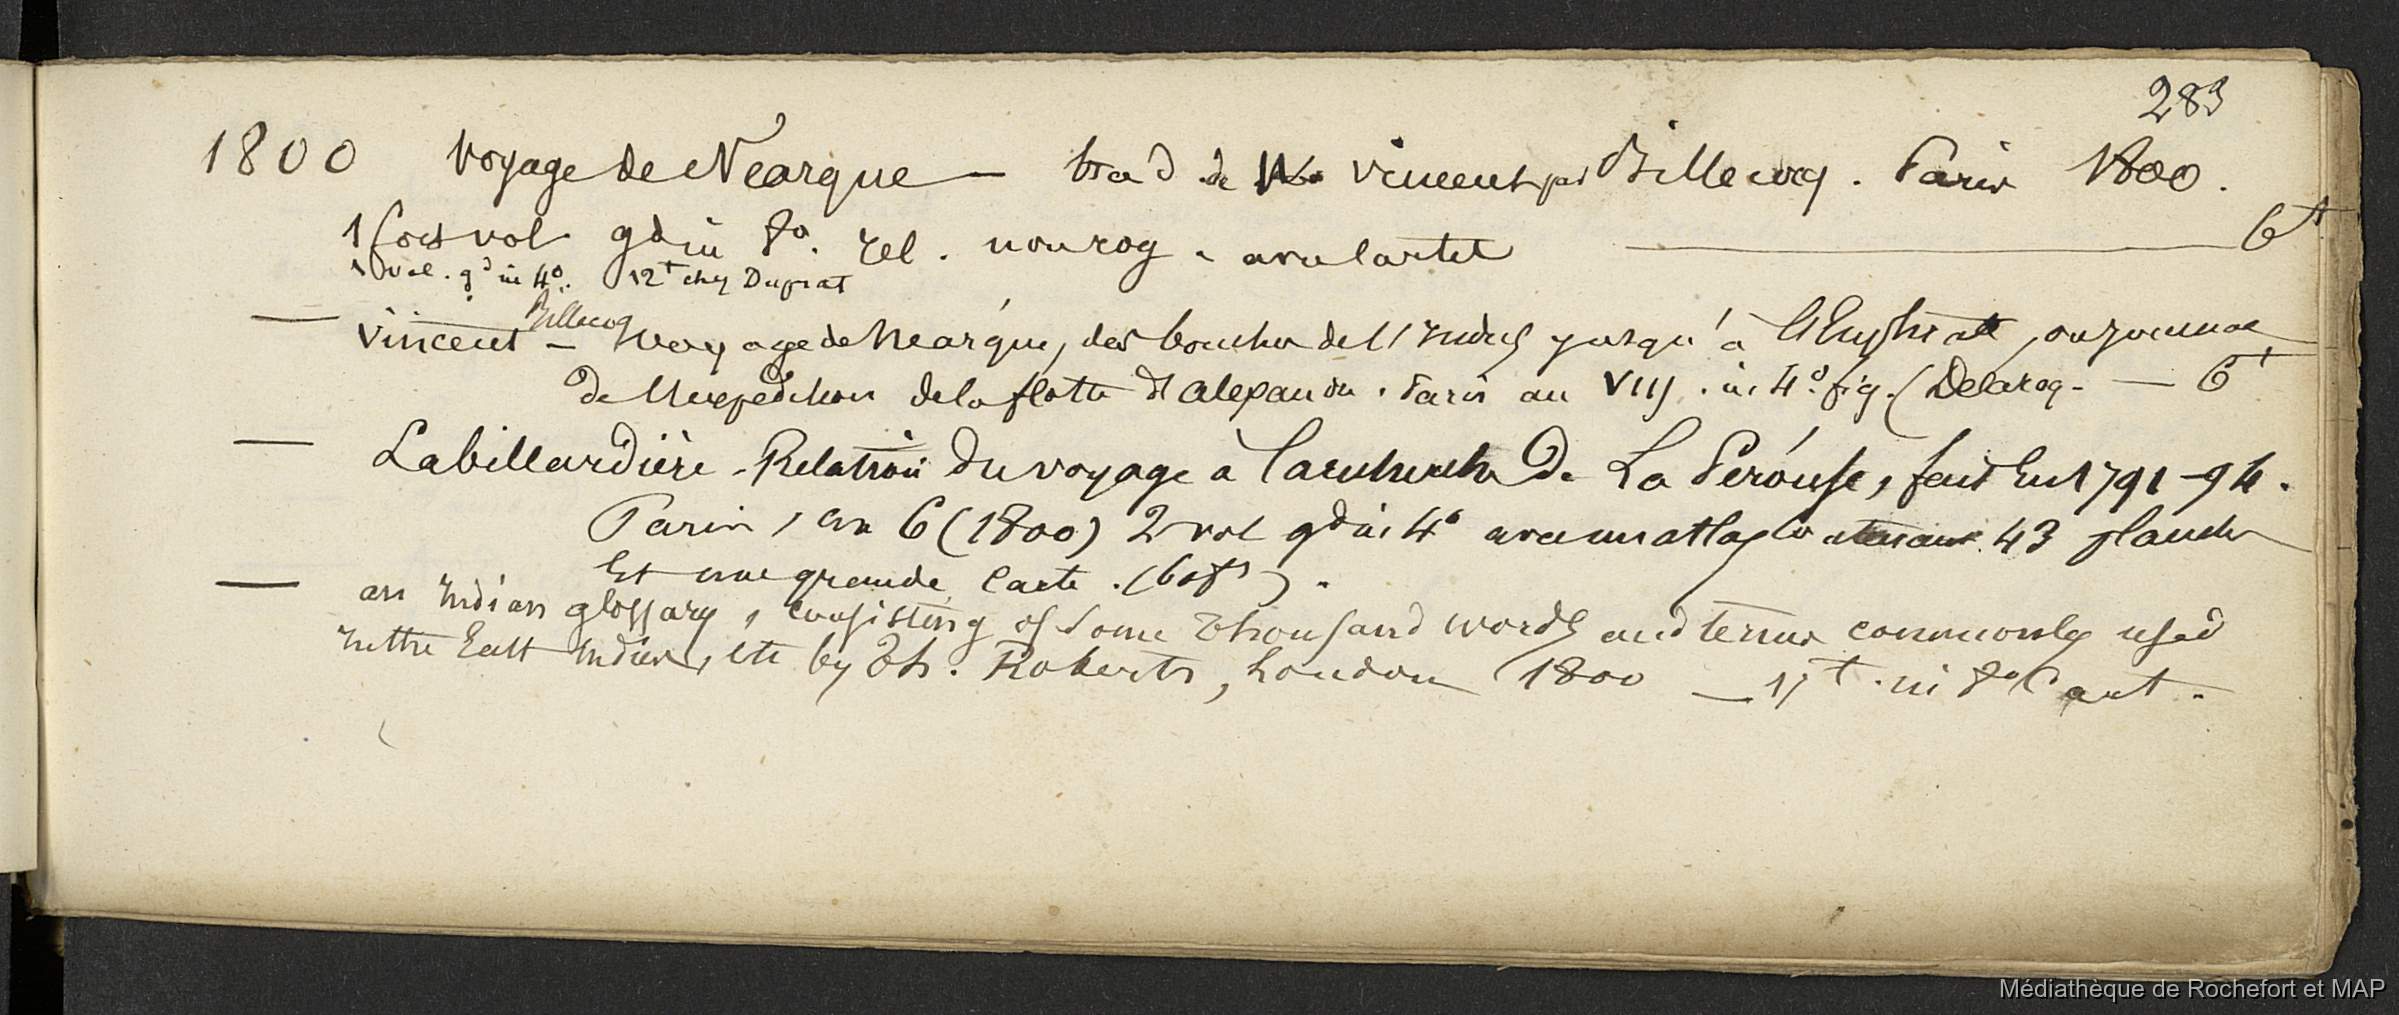 283
1800 Voyage de Nearque — trad de W. Vincent par Billecocq. Paris 1800.
1 fort vol gd in 8o. rel. non rog. avec cartes — 6f
1 vol. gd in 4o. 12f chez Duprat
— Vincent Billecoq — Voyage de Nearque, des bouches de l'Indus jusqu'à l'Euphrate, ou journal
de l'expedition de la flotte d'Alexandre. Paris an VIII. in 4o. fig. (Delaroq. — 6f
— Labillardière. Relation du voyage à la recherche de La Pérouse, fait en 1791-94.
Paris, an 6 (1800) 2 vol gd in 4o avec un atlas contenant 43 planches
et une grande carte. (60f).
— an Indian glossary, consisting of some thousand words and terms commonly used
in the East Indies, etc by Th. Roberts, London 1800 — in 8o cart.
Médiathèque de Rochefort et MAP